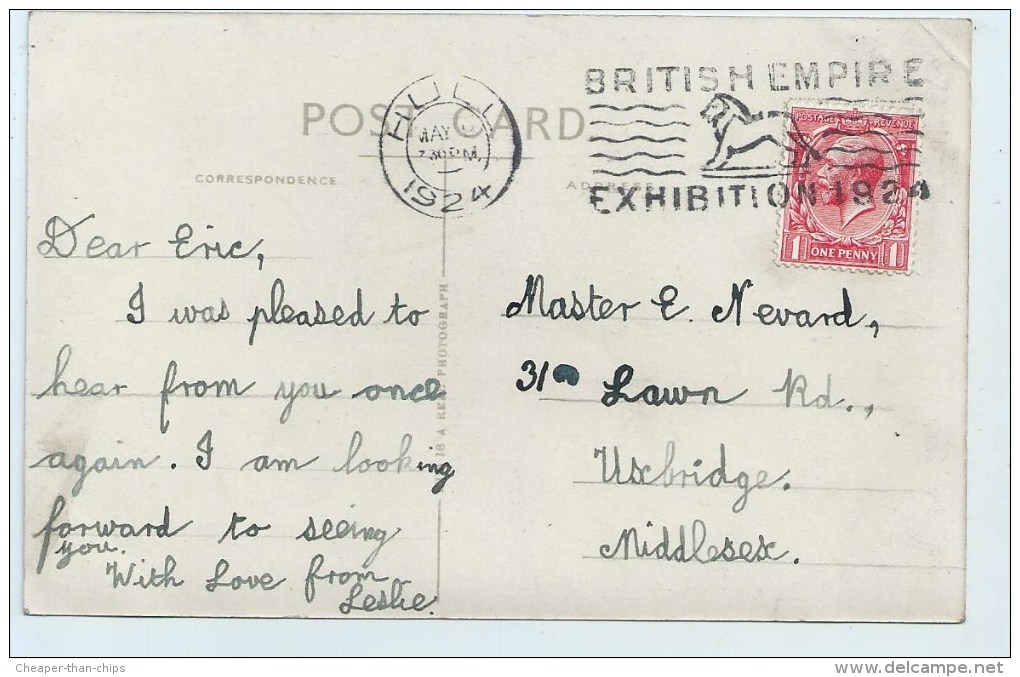 BRITISH EMPIRE
EXHIBITION 1924
HULL
MAY
7.30 PM
1924
POSTAGE REVENUE
1 ONE PENNY 1
POST CARD
CORRESPONDENCE
ADDRESS
Dear Eric,
I was pleased to
hear from you once
again. I am looking
forward to seeing
you.
With Love from
Leslie.
IS A REAL PHOTOGRAPH
Master E. Nevard,
31 Lawn Rd.,
Uxbridge.
Middlesex.
Cheaper-than-chips
www.delcampe.net